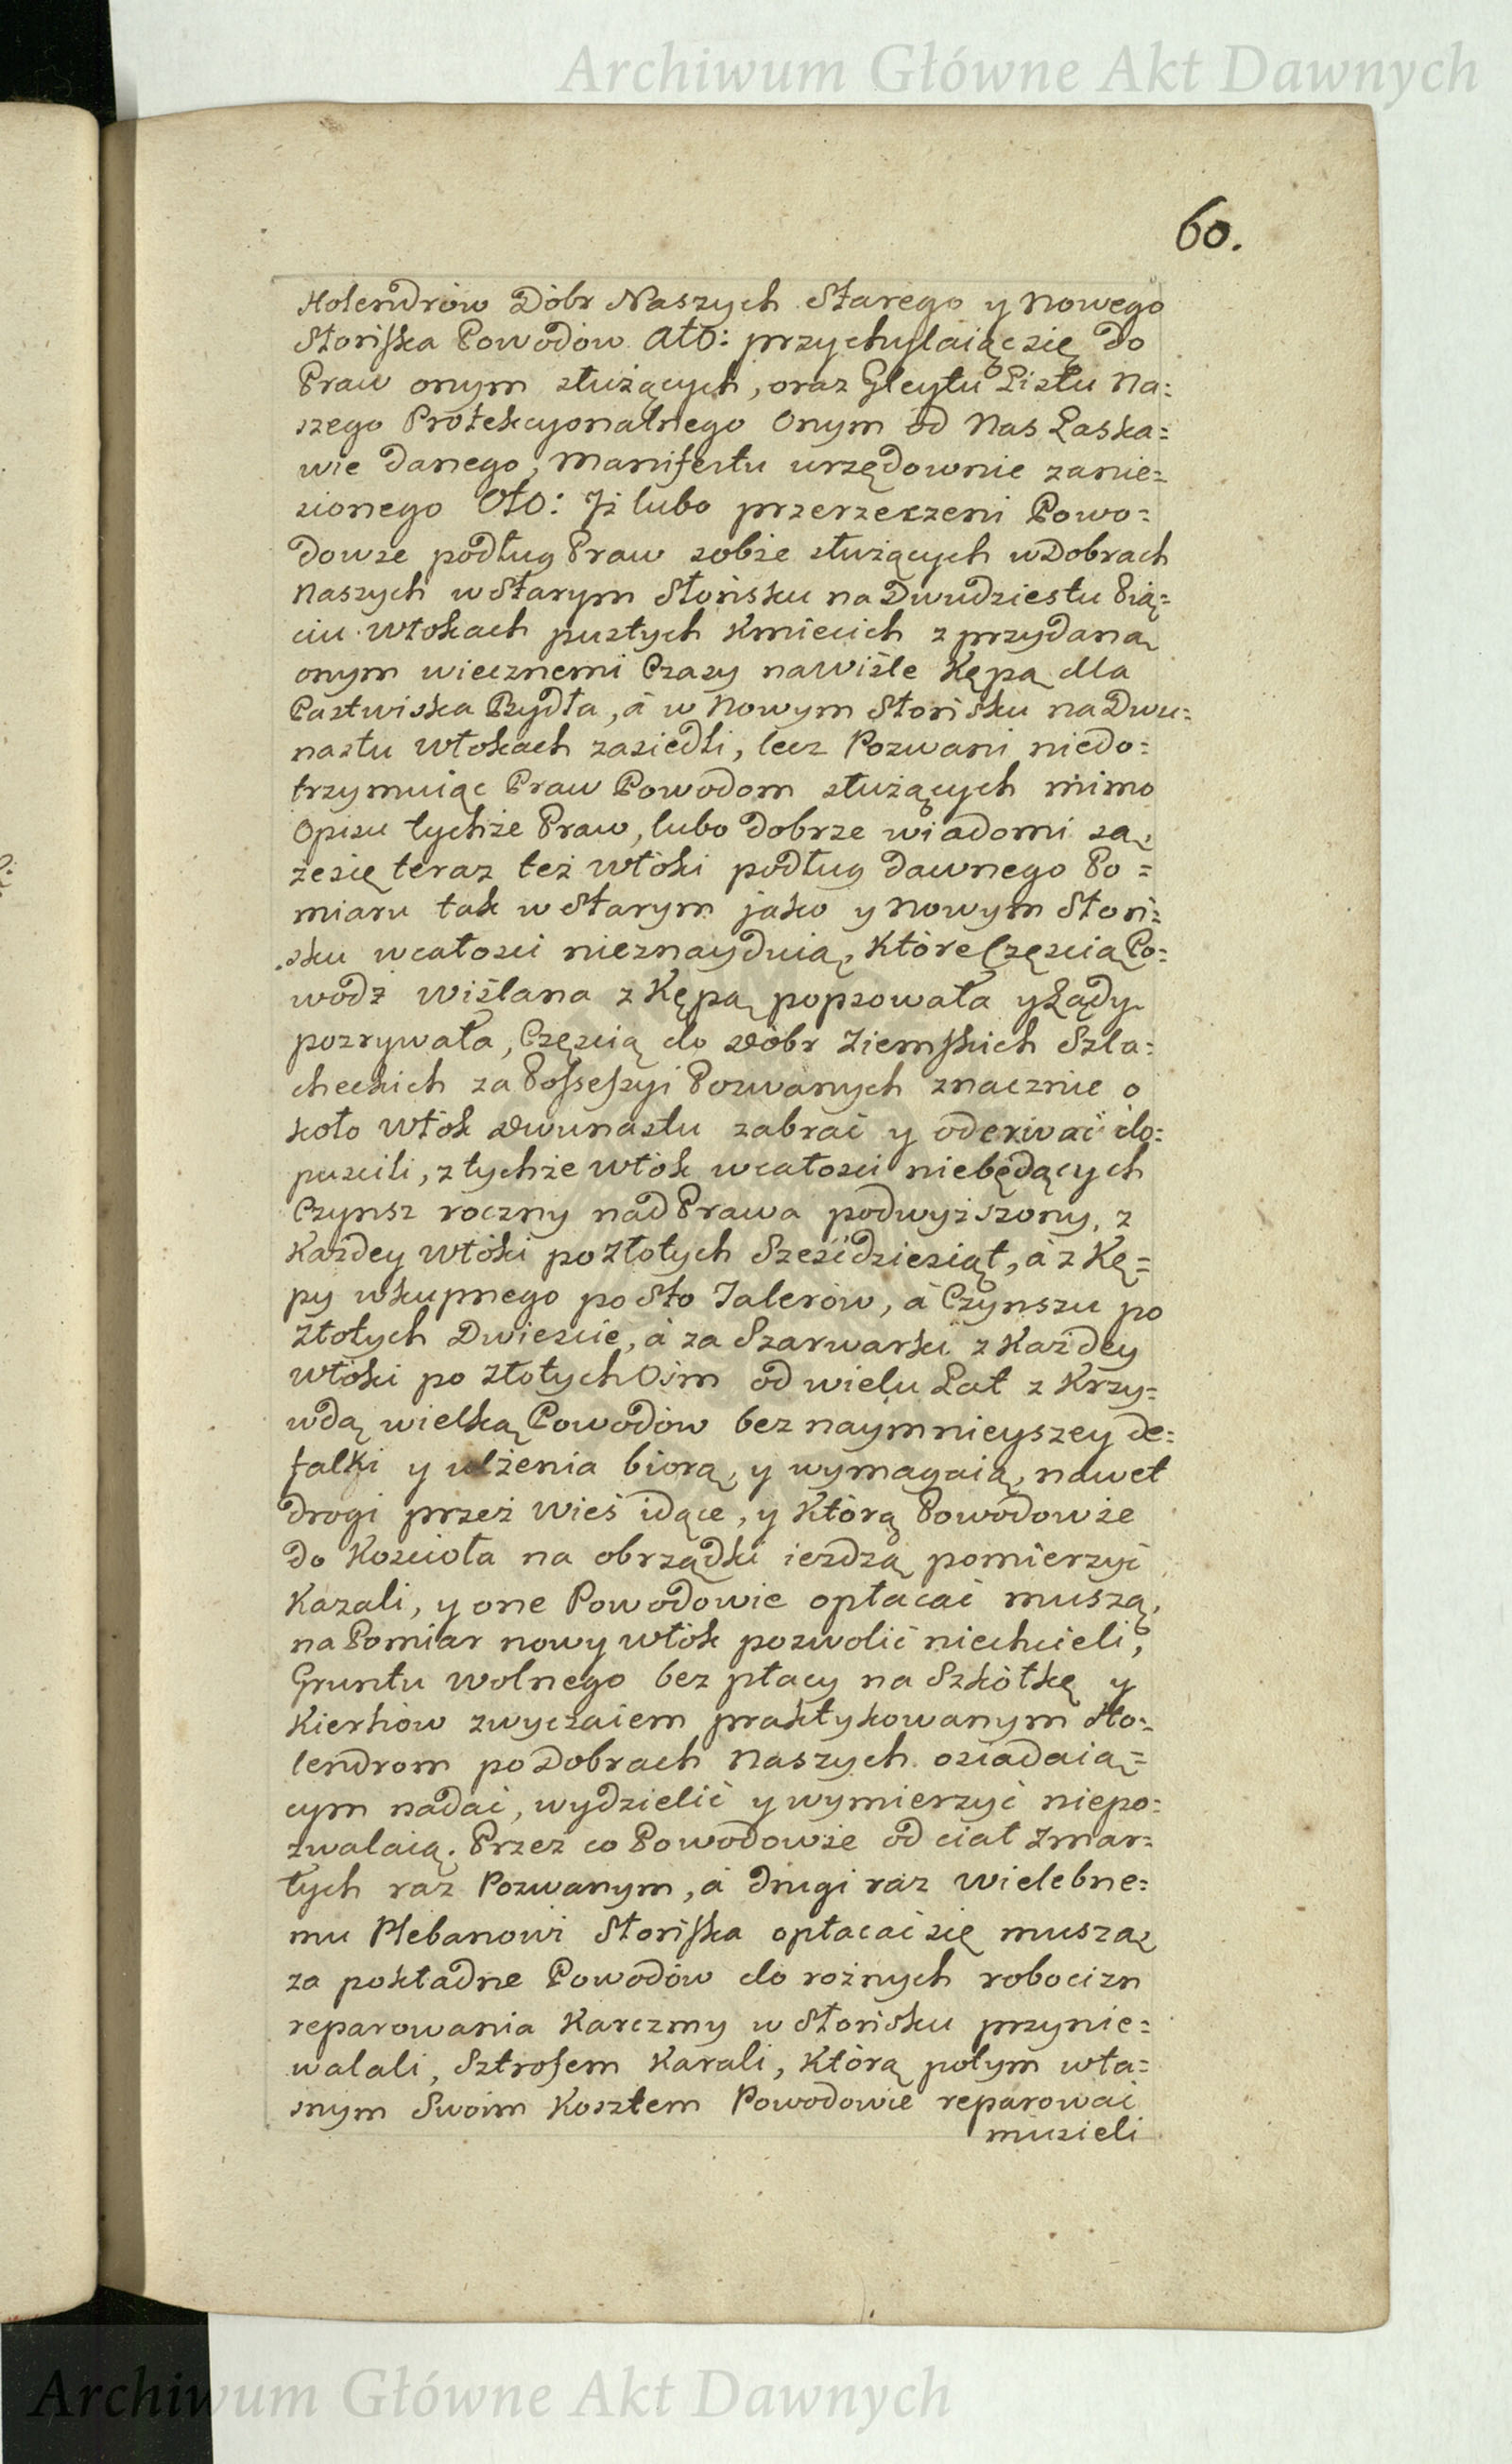 Archiwum Główne Akt Dawnych
60.
Holendrów Dóbr Naszych Starego y Nowego
Słońska Powodów AtO: przychylaiąc się do
Praw onym służących, oraz Gleytu Listu Na=
szego Protekcyonalnego Onym od Nas Łaska=
wie danego, Manifestu urzędownie zanie=
sionego OtO: Jż lubo przerzeczeni Powo=
dowie podług Praw sobie służących w Dobrach
Naszych w Starym Słońsku na Dwudziestu Pią=
ciu Włokach pustych Kmiecich z przydaną
onym wiecznemi Czasy na Wiśle Kępą dla
Pastwiska Bydła, á w Nowym Słońsku na Dwu=
nastu Włokach zasiedli, lecz Pozwani niedo=
trzymuiąc Praw Powodom służących mimo
Opisu tychże Praw, lubo dobrze wiadomi są,
że się teraz też włóki podług dawnego Po=
miaru tak w Starym jako y Nowym Słoń=
sku wcałości nieznayduią, Które Częścią Po=
wódź Wiślana z Kępą popsowała y Lądy
pozrywała, Częścią do Dóbr Ziemskich Szla=
checkich za Possessyi Pozwanych znacznie o
koło Włók dwunastu zabrać y oderwać do=
puścili, z tychże Włók wcałości niebędących
Czynsz roczny nad Prawa podwyższony, z
Każdey Włóki po Złotych Sześćdziesiąt, á z Kę=
py wkupnego po Sto Talerów, á Czynszu po
Złotych Dwieście, á za Szarwarki z Każdey
Włóki po Złotych Ośm od wielu Lat z Krzy=
wdą wielką Powodów bez naymnieyszey de=
falki y ulżenia biorą, y wymagaią, nawet
drogi przez Wieś idące, y Którą Powodowie
do Kościoła na obrządki ieżdzą pomierzyć
Kazali, y one Powodowie opłacać muszą,
na Pomiar nowy włók pozwolić niechcieli,
Gruntu wolnego bez płacy na Szkółkę y
Kierhów zwyczaiem praktykowanym Ho=
lendrom po Dobrach Naszych osiadaią=
cym nadać, wydzielić y wymierzyć niepo=
zwalaią. Przez co Powodowie od ciał Zmar=
łych raz Pozwanym, á drugi raz Wielebne=
mu Plebanowi Słońska opłacać się muszą
za pokładne Powodów do rożnych robocizn
reparowania Karczmy w Słońsku przynie=
walali, Sztrofem Karali, Którą potym wła=
snym Swoim Kosztem Powodowie reparować
musieli
Archiwum Główne Akt Dawnych